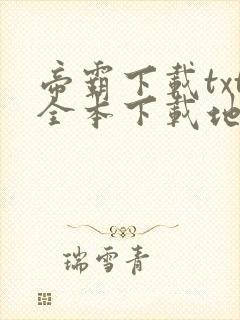 帝霸下載txt
全本下載地
瑞雪青